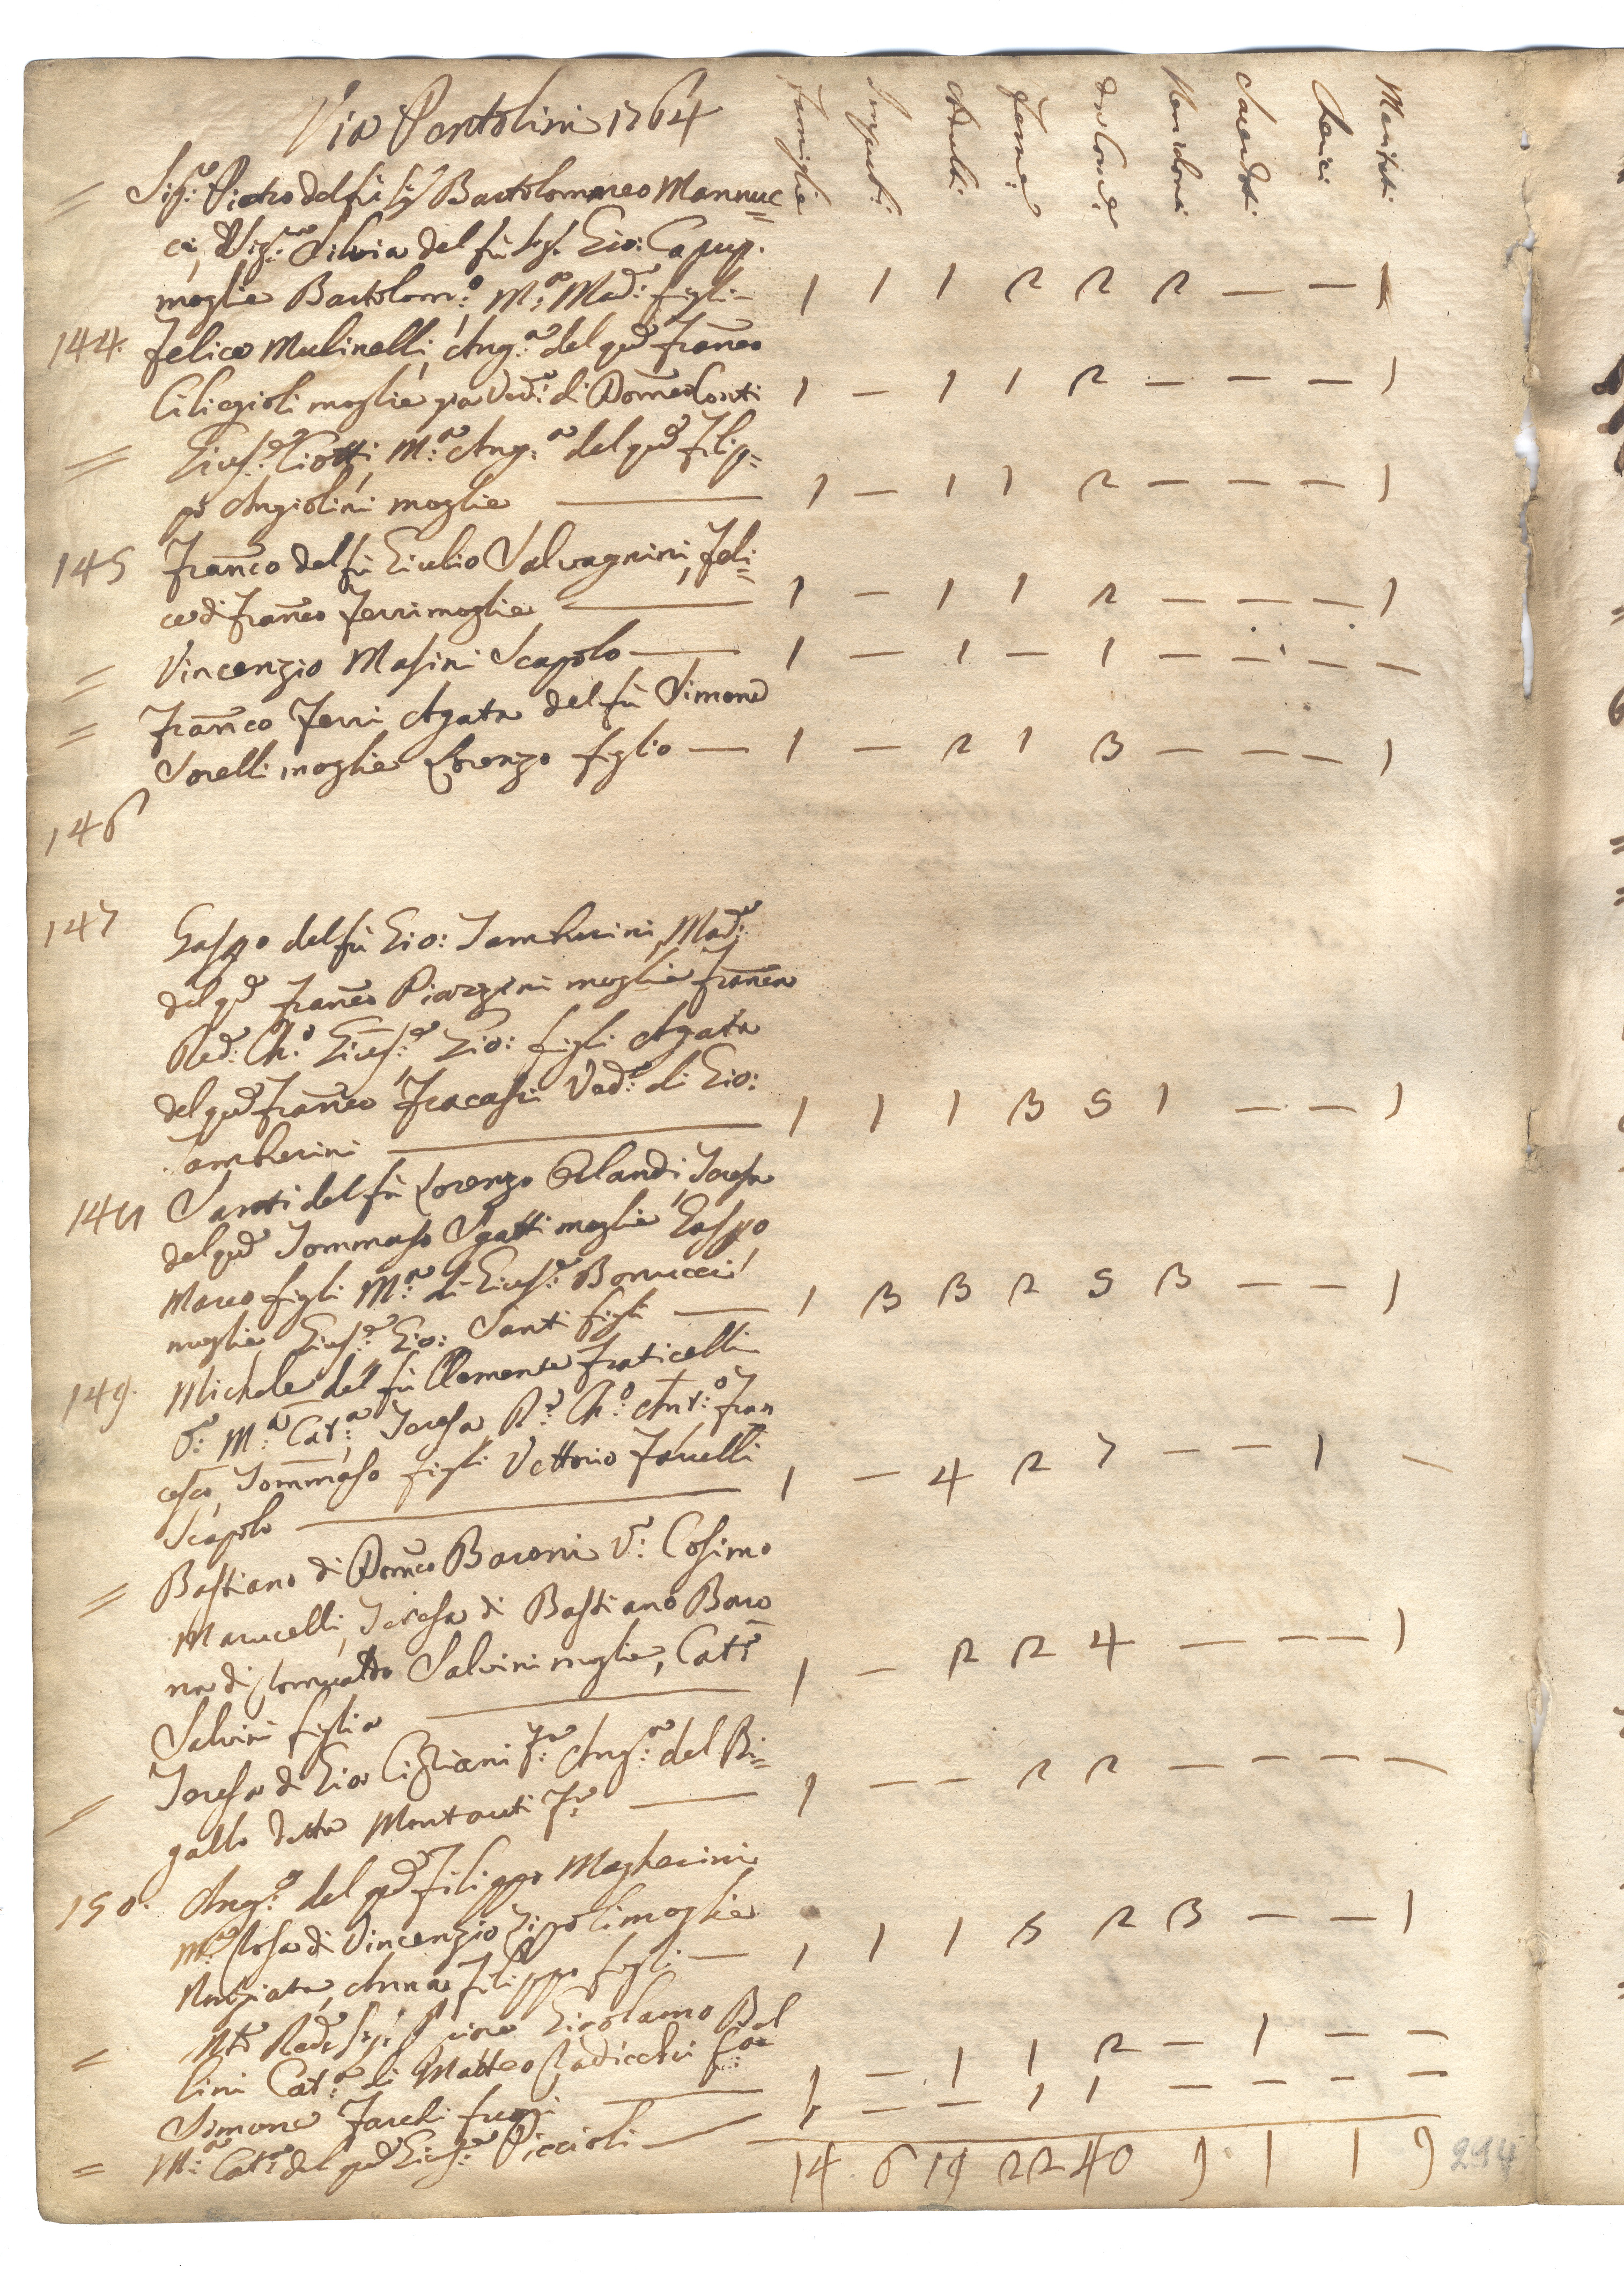 Via Pentolini 1764
Famiglie Impuberi Adulti Femmine da Com.e Non da Com. Sacerdoti Cherici Maritati
= Sig.re Pietro del fù Sig.r Bartolommeo Mannuc=
ci, Sig.ra Silvia del fù Sig.r Gio: Capup.
moglie Bartolom:o M:a Mad:a figli – 1 1 1 2 2 2 — — 1
144. Felice Mulinelli, Ang:a del qd Franco
Ciliegioli moglie Ved:a di Domco Conti 1 – 1 1 2 – – – 1
= Gius:e Ciotti, M:a Ang:a del qd Filip=
po Angiolini moglie — 1 – 1 1 2 – – – 1
145 Franco del fù Giulio Salvagnini, Feli=
ce di Franco Ferri moglie — 1 – 1 1 2 – – – 1
= Vincenzio Masini Scapolo — 1 – 1 – 1 – – – –
= Franco Ferri Agata del fù Simone
Sorelli moglie Lorenzo figlio — 1 – 2 1 3 – – – 1
146
147 Gaspo del fù Gio: Tamburini, Mad:a
del qd Franco Piazzini moglie Franca
Red: Ch:o Gius:e Gio: figli Agata
del qd Franco Fracassi Ved:a di Gio:
Tamburini — 1 1 1 3 5 1 – – 1
148 Santi del fù Lorenzo Orlandi, Teresa
del qd Tommaso Sgatti moglie Gaspo
Marco figli M:a di Gius:e Bonucci
moglie Gius:e Gio: Santi figli — 1 3 3 2 5 3 – – 1
149. Michele del fù Clemente Fraticelli
V:o M:a Cat:a, Teresa R:do Ch:o Ant:o Fran
cesco, Tommaso figli Vettorio Fanelli
Scapolo — 1 – 4 2 7 – – 1 –
= Bastiano di Domco Baroni V:o Cosimo
Marucelli, Teresa di Bastiano Baro
ni di Romualdo Salvini moglie, Cat:a
Salvini figlia — 1 – 2 2 4 – – – 1
= Teresa di Gio Cigliani F:a Ang:a del Bi=
gallo detta Montauti F:a — 1 – – 2 2 – – – –
150. Ang:o del qd Filippo Magherini
M:a Rosa di Vincenzio Zipoli moglie
Nunziata, Anna Filippo figli — 1 1 1 5 2 3 – – 1
= Girolamo Bel
lini Cat:a di Matteo Radicchi 1 – 1 1 2 – 1 – –
Simone
= M:a Cat:a del qd Gius:e Piccioli — 1 – – 1 1 – – – –
14 6 19 22 40 9 1 1 9
294